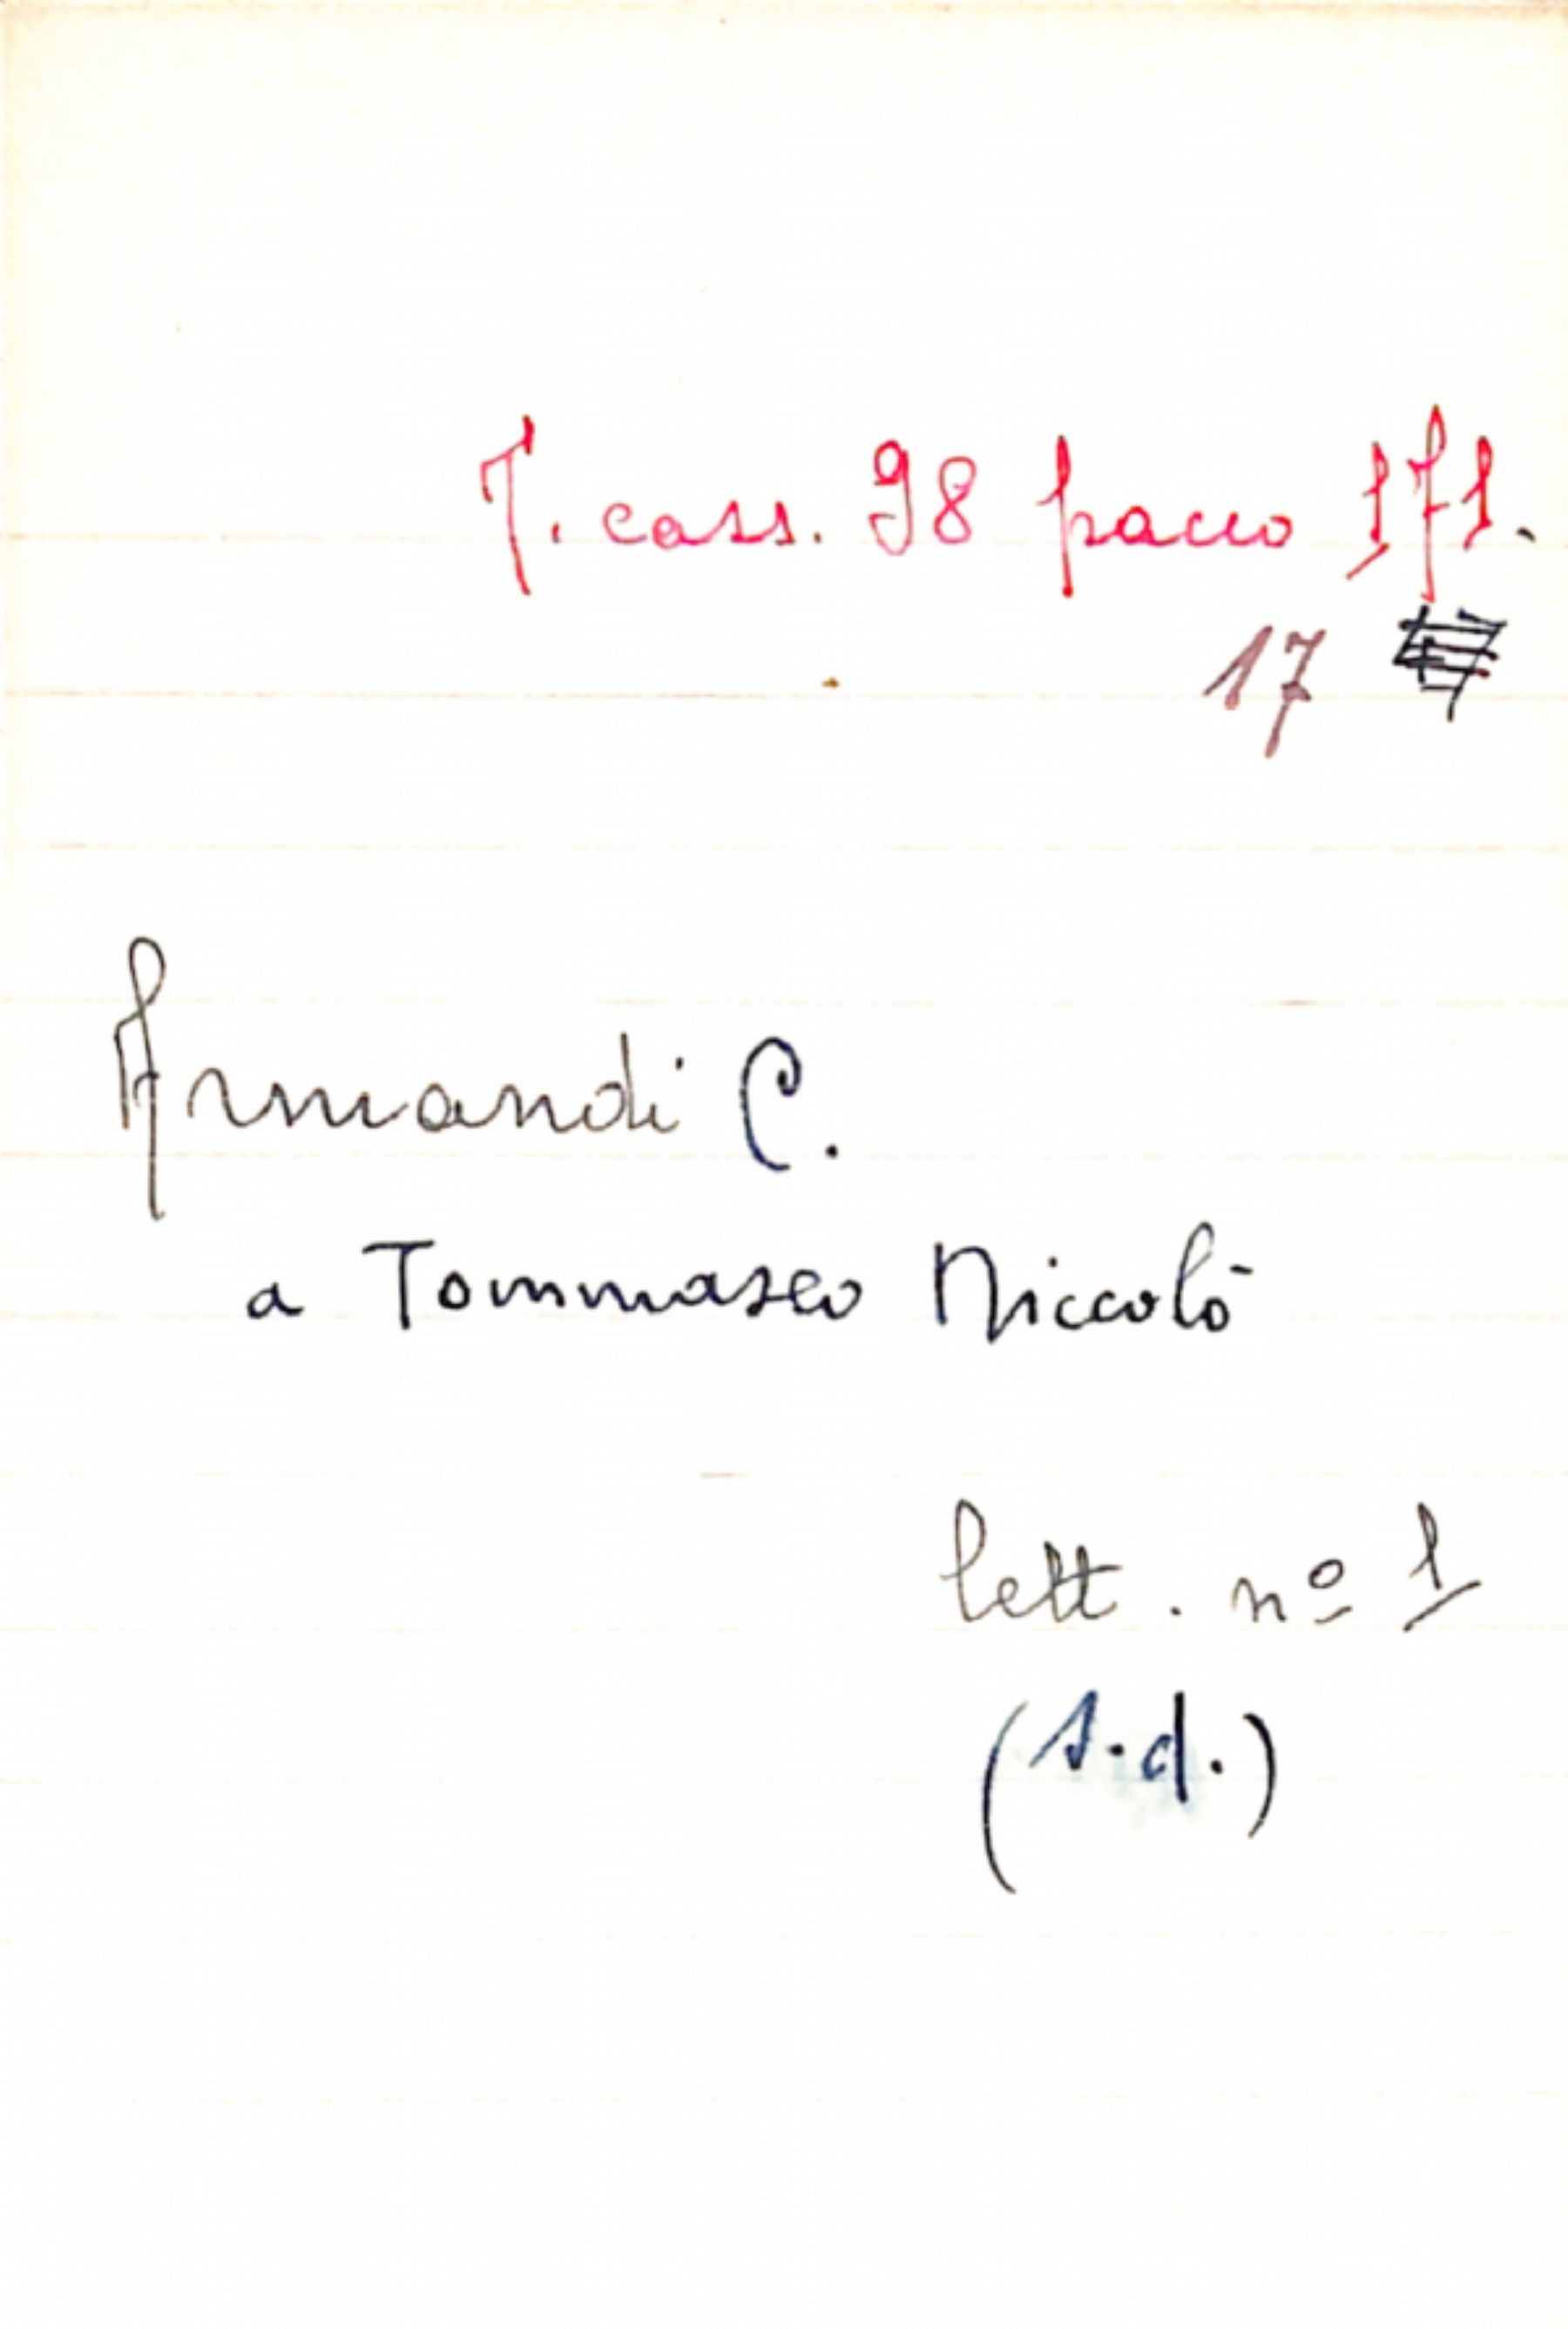 T. cass. 98 pacco 171.
17
Armandi C.
a Tommaseo Niccolò
lett. nº 1
(s.d.)